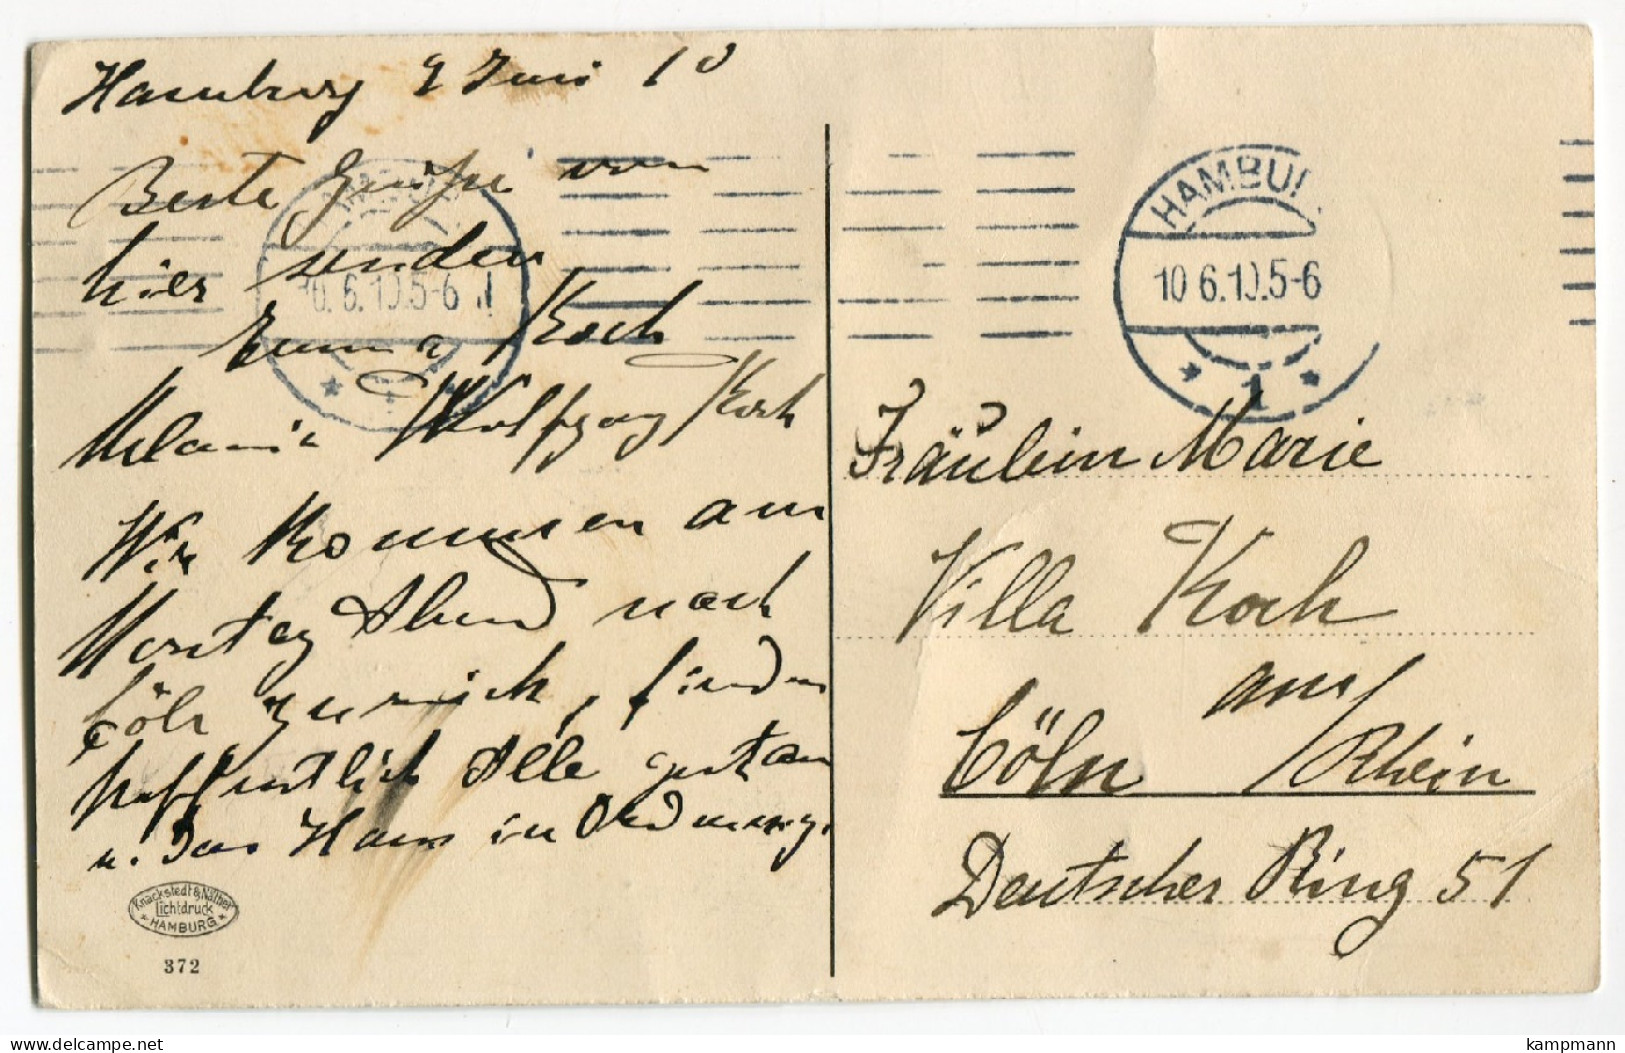 Hamburg 9 Juni 10
Beste Grüße von
hier senden
Emma Koch
Melanie Wolfgang Koch
Wir kommen am
Montag Abend nach
Cöln zurück, finden
hoffentlich Alle gesund an
u. das Haus in Ordnung.
Knackstedt & Näther
Lichtdruck
HAMBURG
372
HAMBU
10.6.10.5-6
1
HAMBU
10.6.10.5-6
1
Fräulein Marie
Villa Koch
Cöln am/Rhein
Deutscher Ring 51
delcampe.net
kampmann